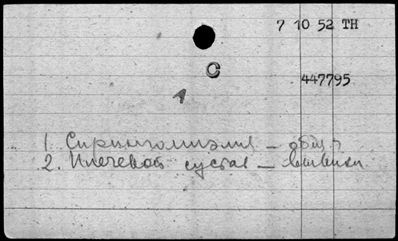 7 10 52 TH
C
447795
A
1. Сирингомиэлия — общ.
2. Плечевой сустав — вывихи